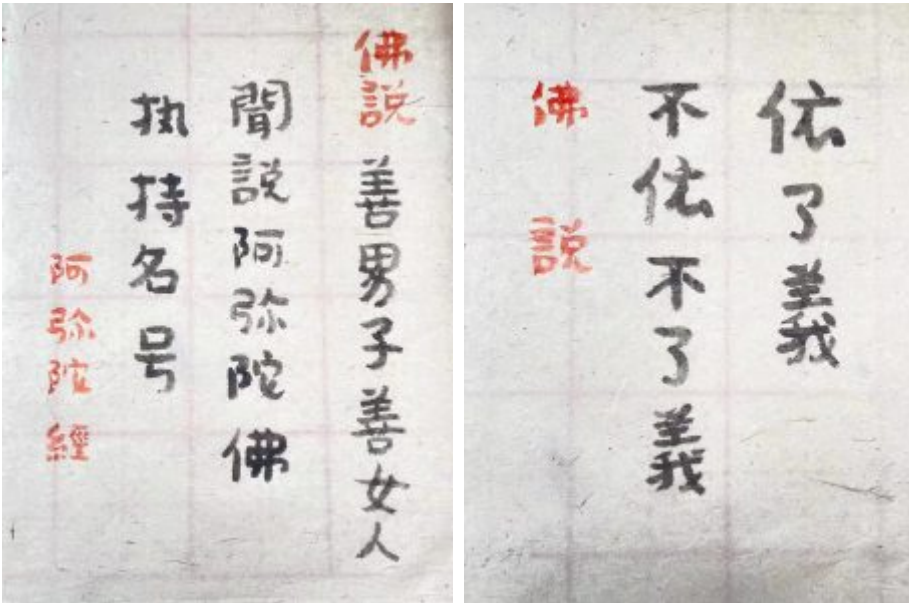 佛説善男子善女人
聞説阿弥陀佛
执持名号
阿弥陀經
依了義
不依不了義
佛説